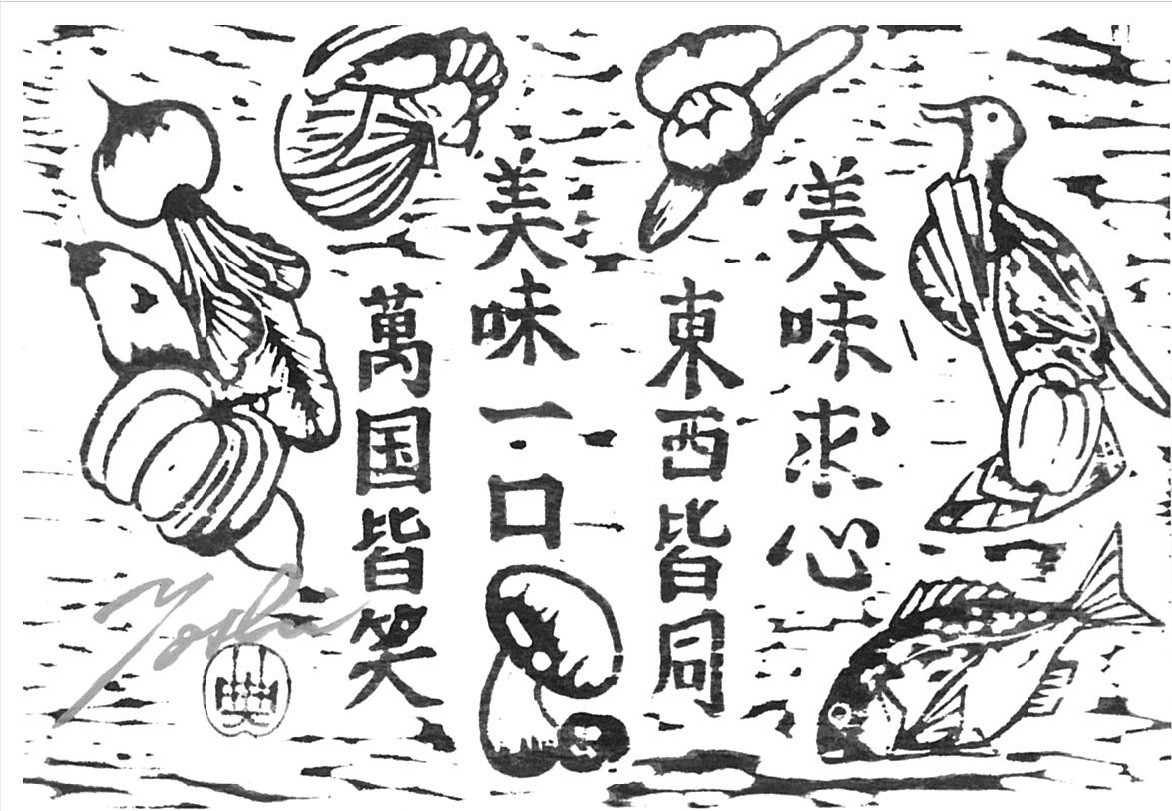 美味求心
東西皆同
美味一口
萬国皆笑
Yoshi